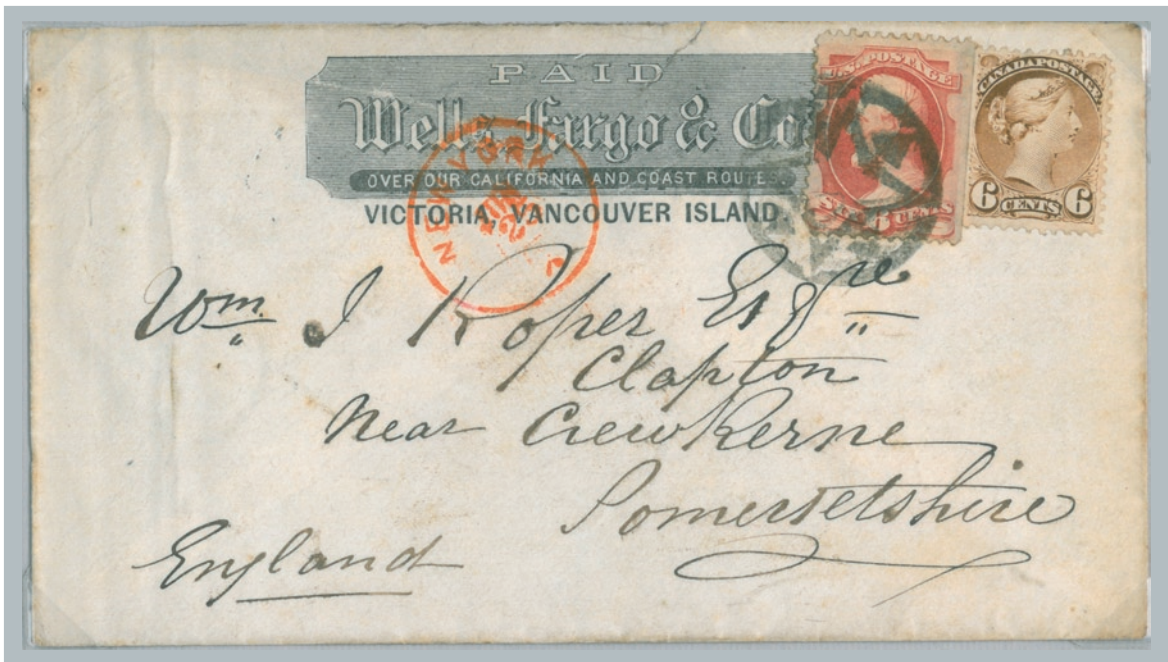 PAID
Wells, Fargo & Co
OVER OUR CALIFORNIA AND COAST ROUTES.
VICTORIA, VANCOUVER ISLAND.
U.S. POSTAGE
SIX 6 CENTS
CANADA POSTAGE
6 CENTS 6
NEW YORK
NOV
Wm. J Roper Esqre
Clapton
Near Crewkerne
Somersetshire
England